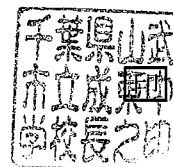 千葉県山武
市立成東中
学校長之印